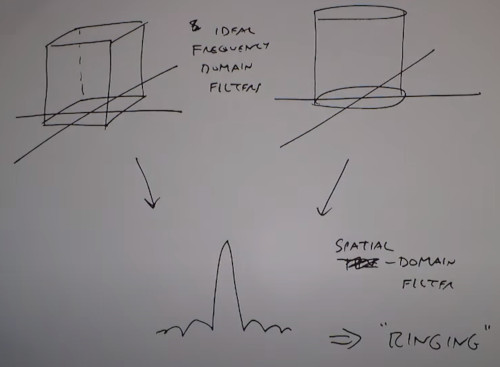 & IDEAL
FREQUENCY
DOMAIN
FILTERS
SPATIAL
-DOMAIN
FILTER
⇒ "RINGING"